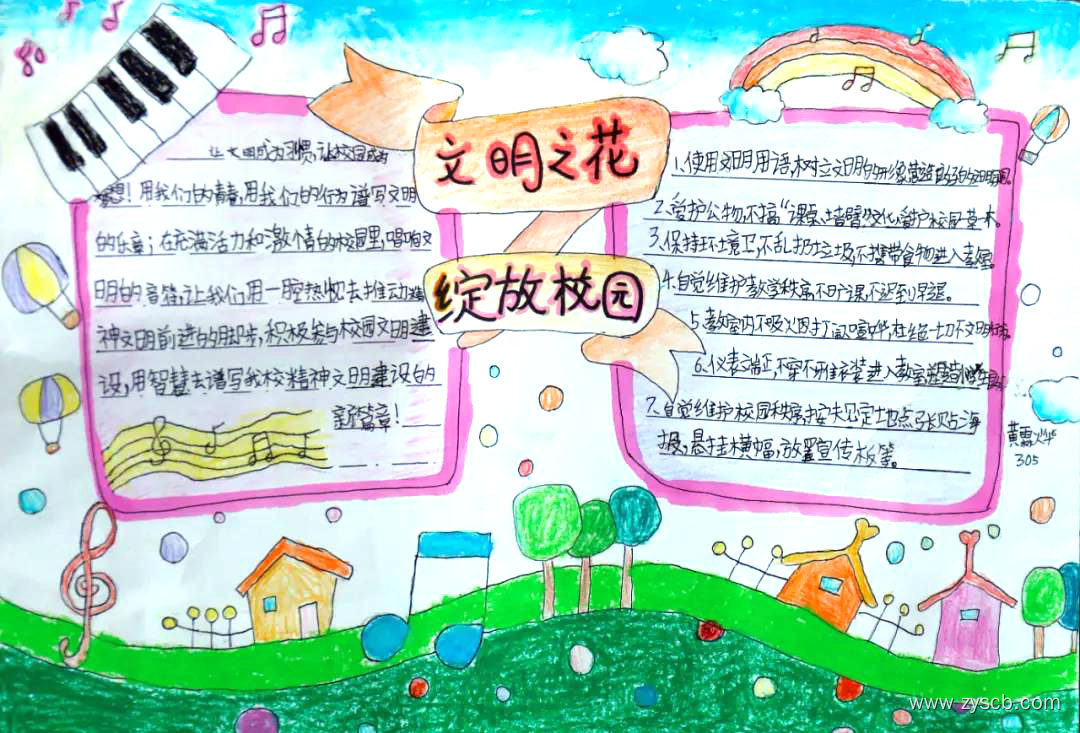 文明之花
绽放校园
让文明成为习惯,让校园成为
梦想!用我们的青春,用我们的行为谱写文明
的乐章;在充满活力和激情的校园里,唱响文
明的音符,让我们用一腔热忱去推动精
神文明前进的脚步,积极参与校园文明建
设,用智慧去谱写我校精神文明建设的
新篇章!
1.使用文明用语,树立文明的形象,营造
2.爱护公物,不搞“课桌、墙壁”文化,爱护校园草木。
3.保持环境卫,不乱扔垃圾,不携带食物进入教室。
4.自觉维护教学秩序,不旷课,不迟到,早退。
5.教室内不吸火因打闹喧哗,杜绝一切不文明
6.仪表端正,不穿不雅衣装进入教室,塑造
7.自觉维护校园秩序,按夫见定地点张贴海
报,悬挂横幅,放置宣传板等。
黄霖烨
305
www.zyscb.com